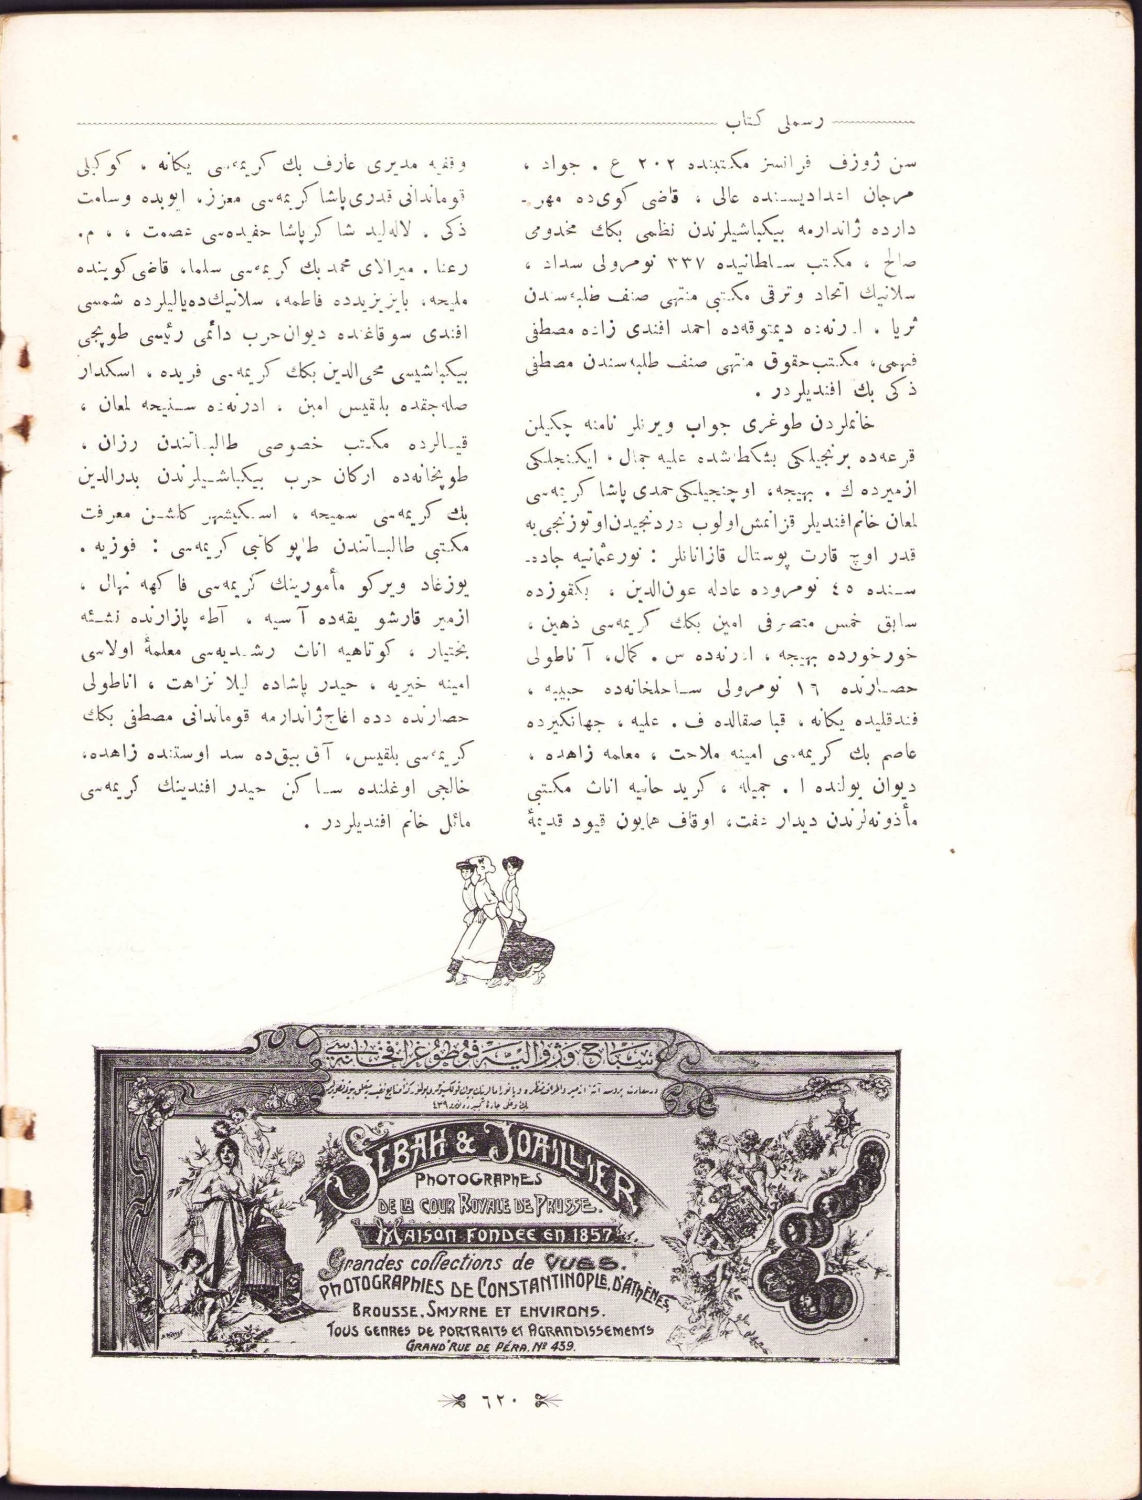 رسملی كتاب
سن ژوزف فرانسز مكتبنده ٢٠٢ ع . جواد ،
مرجان اعدادیسنده عالی ، قاضی كوی‌ده مهر-
دارده ژاندارمه بیكباشیلرندن نظمی بكك مخدومی
صالح ، مكتب سلطانیده ٣٣٧ نومرولی سداد ،
سلانیك اتحاد وترقی مكتبی منتهی صنف طلبه‌سندن
ثریا . ادرنه‌ده دیمتوقه‌ده احمد افندی زاده مصطفی
فهمی، مكتب‌حقوق منتهی صنف طلبه‌سندن مصطفی
ذكی بك افندیلردر .
خانملردن طوغری جواب ویرنلر نامنه چكیلن
قرعه‌ده برنجیلكی بشكطاشده علیه جمال . ایكنجلكی
ازمیرده ك . بهیجه، اوچنجیلكی حمدی پاشا كریمه‌سی
لمعان خانم‌افندیلر قزانمش‌اولوب دردنجیدن‌اوتوزنجی‌یه
قدر اوچ قارت پوستال قازانانلر : نورعثمانیه جاده-
سنده ٤٥ نومروده عادله عون‌الدین ، بكقوزده
سابق خمس متصرفی امین بكك كریمه‌سی ذهین ،
خورخورده بهیجه ، ادرنه‌ده س . كمال، آناطولی
حصارنده ١٦ نومرولی ساحلخانه‌ده حبیبه ،
فندقلیده یكانه ، قبا صقالده ف . علیه ، جهانكیرده
عاصم بك كریمه‌سی امینه ملاحت ، معلمه زاهده ،
دیوان یولنده ا . جمیله ، كرید حانیه اناث مكتبی
مأذونه‌لرندن دیدار عفت، اوقاف همایون قیود قدیمهٔ
وقفیه مدیری عارف بك كریمه‌سی یكانه ، كوكبلی
قوماندانی قدری پاشا كریمه‌سی معزز، ایوبده وسامت
ذكی . لاله‌لیده شاكر پاشا حفیده‌سی عصمت ، ، م.
رعنا . میرالای محمد بك كریمه‌سی سلما، قاضی كوینده
ملیحه، بایزیدده فاطمه، سلانیك‌ده‌یالیلرده شمسی
افندی سوقاغنده دیوان‌حرب دائمی رئیسی طوپجی
بیكباشیسی محی‌الدین بكك كریمه‌سی فریده ، اسكدار
صله‌جقده بلقیس امین ، ادرنه‌ده سنیحه لمعان ،
قیالرده مكتب خصوصی طالباتندن رزان ،
طوپخانه‌ده اركان حرب بیكباشیلرندن بدرالدین
بك كریمه‌سی سمیحه ، اسكیشهر كلشن معرفت
مكتبی طالباتندن طاپو كاتبی كریمه‌سی : فوزیه .
یوزغاد ویركو مأمورینك كریمه‌سی فاكهه نهال ،
ازمیر قارشو یقه‌ده آسیه ، آطه پازارنده نشئه
بختیار ، كوتاهیه اناث رشدیه‌سی معلمهٔ اولاسی
امینه خیریه ، حیدر پاشاده لیلا نزاهت ، اناطولی
حصارنده دده اغاج‌ژاندارمه قوماندانی مصطفی بكك
كریمه‌سی بلقیس، آق بییق‌ده سد اوستنده زاهده،
خالجی اوغلنده ساكن حیدر افندینك كریمه‌سی
مائل خانم افندیلردر .
سباح وژوالیه فوطوغرافخانه‌سی
SEBAH & JOAILLIER
PHOTOGRAPHES
DE LA COUR ROYALE DE PRUSSE.
MAISON FONDEE EN 1857
Grandes collections de VUES.
PHOTOGRAPHIES DE CONSTANTINOPLE, D'ATHÈNES,
BROUSSE, SMYRNE ET ENVIRONS.
TOUS GENRES DE PORTRAITS ET AGRANDISSEMENTS
GRAND'RUE DE PÉRA. Nº 439.
٦٢٠